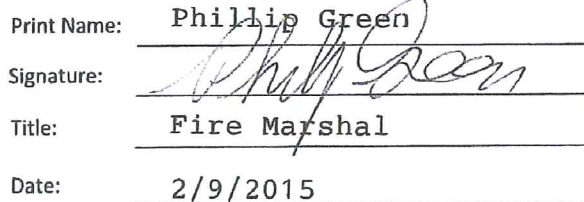 Print Name: Phillip Green
Signature: Phillip Green
Title: Fire Marshal
Date: 2/9/2015